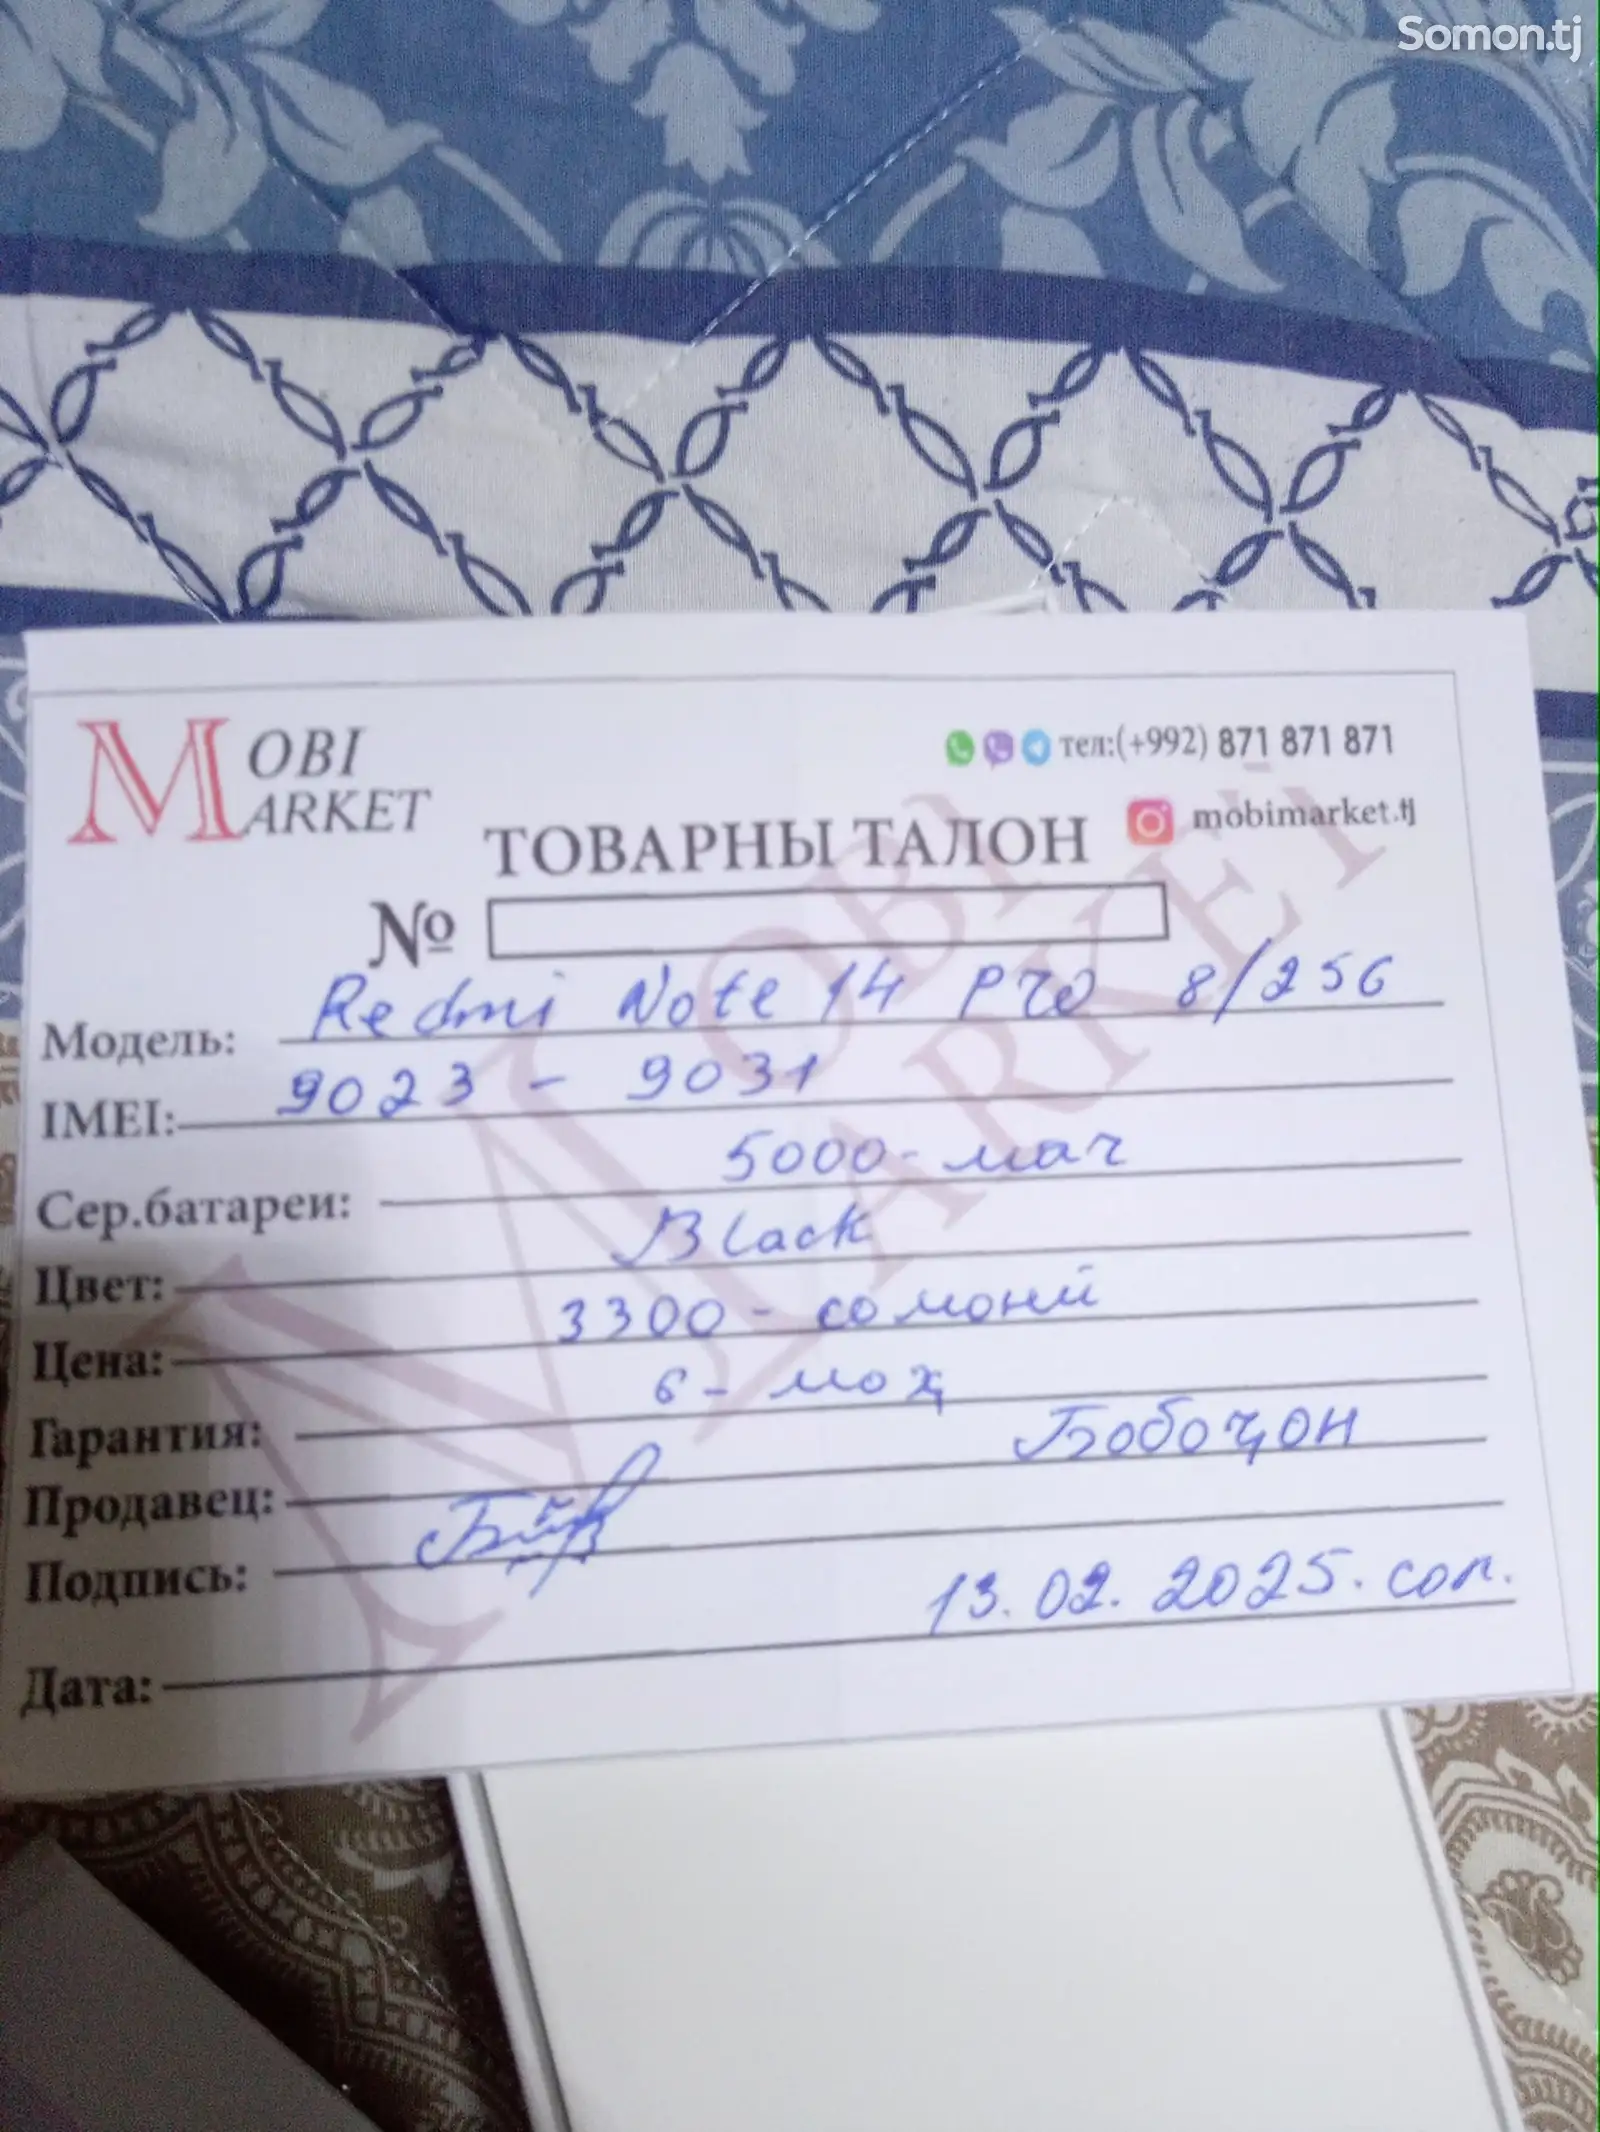 Somon.tj
MOBI MARKET
тел:(+992) 871 871 871
mobimarket.tj
ТОВАРНЫ ТАЛОН
№
Модель: Redmi Note 14 Pro 8/256
IMEI: 9023 - 9031
Сер.батареи: 5000 - мач
Цвет: Black
Цена: 3300 - сомони
Гарантия: 6 - моҳ
Продавец: Бобоҷон
Подпись:
Дата: 13.02.2025. сол.
MOBI MARKET